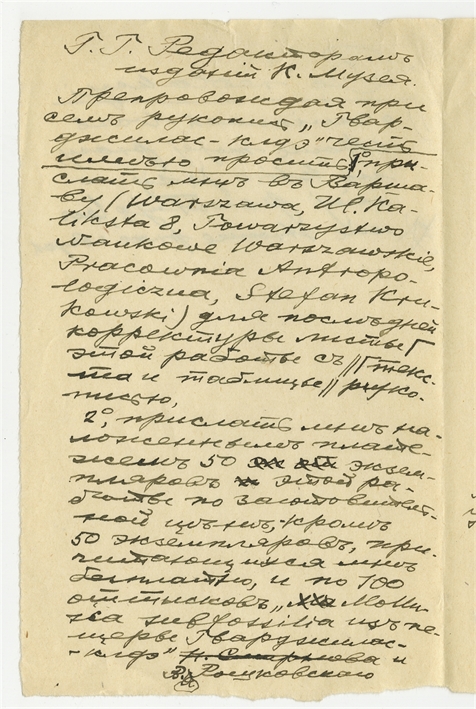 Г. Г. Редакторамъ
изданій К. Музея.
Препровождая при
семъ рукопись „Гвар-
джилас-клдэ" честь
имѣю просить 1°, при-
слать мнѣ въ Варша-
ву (Warszawa, Ul. Ka-
liksta 8, Towarzystwo
Naukowe Warszawskie,
Pracownia Antropo-
logiczna, Stefan Kru-
kowski) для послѣдней
корректуры листы
этой работы съ тек-
ста и таблицы руко-
писью,
2°, прислать мнѣ на-
ложеннымъ плате-
жемъ 50 экзем-
пляровъ этой ра-
боты по заготовитель-
ной цѣнѣ, кромѣ
50 экземпляровъ, при-
читающихся мнѣ
безплатно, и по 100
оттысковъ „Mollu-
sca subfossilia изъ пе-
щеры Гварджилас-
-клдэ" Н. Смирнова и
Рошковскаго